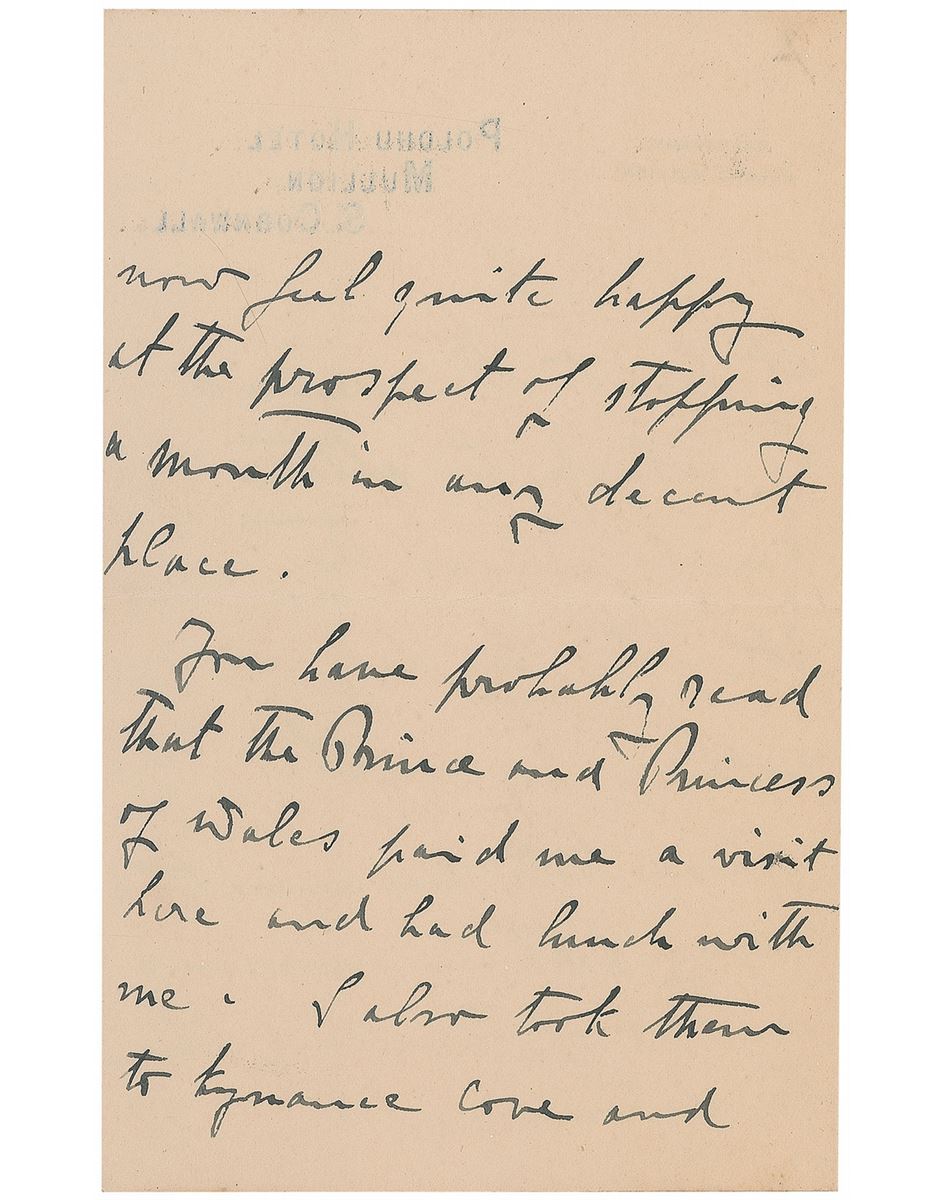 POLDHU HOTEL
MULLION
S. CORNWALL
now feel quite happy
at the prospect of stopping
a month in any decent
place.
You have probably read
that the Prince and Princess
of Wales paid me a visit
here and had lunch with
me. I also took them
to kynance cove and